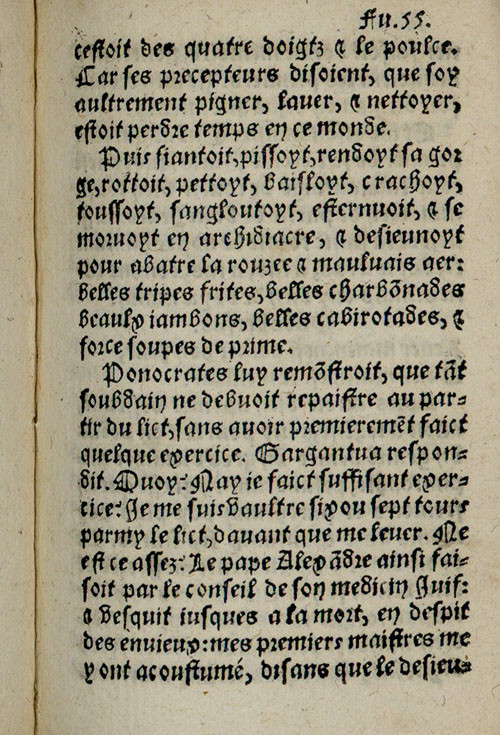 Fu.55.
cestoit des quatre doigtz ⁊ le poulce.
Car ses precepteurs disoient, que soy
aultrement pigner, lauer, ⁊ nettoyer,
estoit perdre temps en ce monde.
Puis fiantoit, pissoyt, rendoyt sa gor
ge, rottoit, pettoyt, baisloyt, crachoyt,
toussoyt, sangloutoyt, esternuoit, ⁊ se
moruoyt en archidiacre, ⁊ desieunoyt
pour abatre la rouzee ⁊ mauluais aer:
belles tripes frites, belles charbõnades
beaulx iambons, belles cabirotades, ⁊
force soupes de prime.
Ponocrates luy remõstroit, que tãt
soubdain ne debuoit repaistre au par-
tir du lict, sans auoir premieremẽt faict
quelque exercice. Gargantua respon-
dit. Quoy? Nay ie faict suffisant exer-
cice? Je me suis vaultre six ou sept tours
parmy le lict, dauant que me leuer. Ne
est ce assez? Le pape Alexãdre ainsi fai-
soit par le conseil de son medicin Juif:
⁊ vesquit iusques a la mort, en despit
des enuieux: mes premiers maistres me
y ont acoustumé, disans que le desieu-